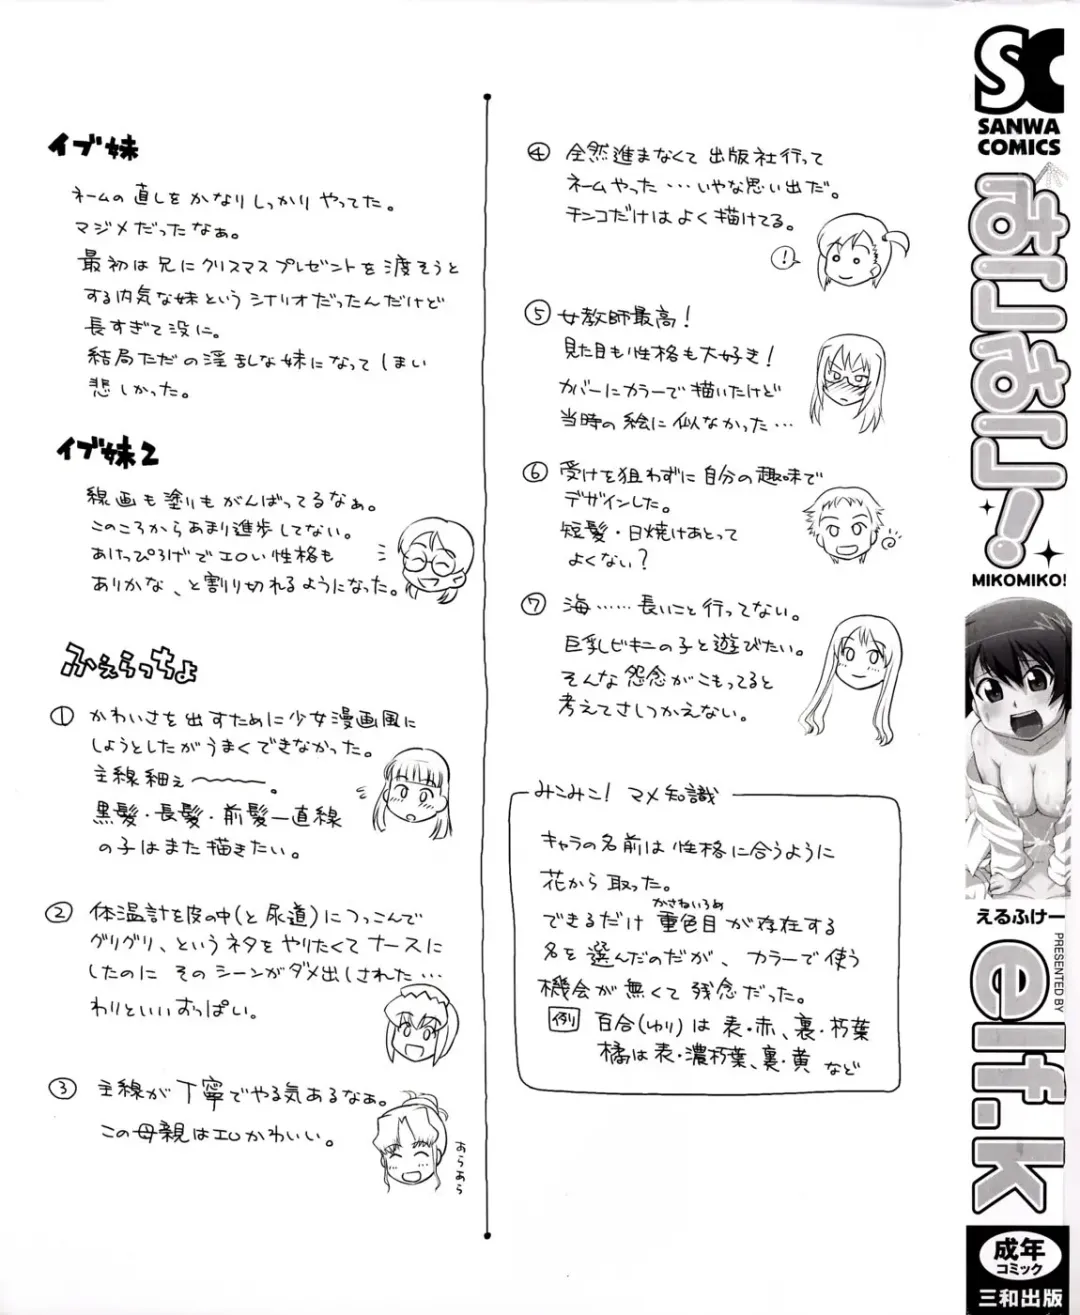 イブ妹
ネームの直しをかなりしっかりやってた。
マジメだったなぁ。
最初は兄にクリスマスプレゼントを渡そうと
する内気な妹というシナリオだったんだけど
長すぎて没に。
結局ただの淫乱な妹になってしまい
悲しかった。
イブ妹2
線画も塗りもがんばってるなぁ。
このころからあまり進歩してない。
あけっぴろげでエロい性格も
ありかな、と割り切れるようになった。
ふぇらっちょ
① かわいさを出すために少女漫画風に
しようとしたがうまくできなかった。
主線細ぇ〜〜〜〜。
黒髪・長髪・前髪一直線
の子はまた描きたい。
② 体温計を皮の中(と尿道)につっこんで
グリグリ、というネタをやりたくてナースに
したのにそのシーンがダメ出しされた…
わりといいおっぱい。
③ 主線が丁寧でやる気あるなぁ。
この母親はエロかわいい。
あらあら
④ 全然進まなくて出版社行って
ネームやった…いやな思い出だ。
チンコだけはよく描けてる。
!
⑤ 女教師最高!
見た目も性格も大好き!
カバーにカラーで描いたけど
当時の絵に似なかった…
⑥ 受けを狙わずに自分の趣味で
デザインした。
短髪・日焼けあとって
よくない?
⑦ 海……長いこと行ってない。
巨乳ビキニの子と遊びたい。
そんな怨念がこもってると
考えてさしつかえない。
みこみこ! マメ知識
キャラの名前は性格に合うように
花から取った。
かさねいろめ
できるだけ重色目が存在する
名を選んだのだが、カラーで使う
機会が無くて残念だった。
例 百合(ゆり)は表・赤、裏・朽葉
橘は表・濃朽葉、裏・黄 など
SC
SANWA
COMICS
みこみこ!
MIKOMIKO!
えるふけー
PRESENTED BY
elf.k
成年
コミック
三和出版